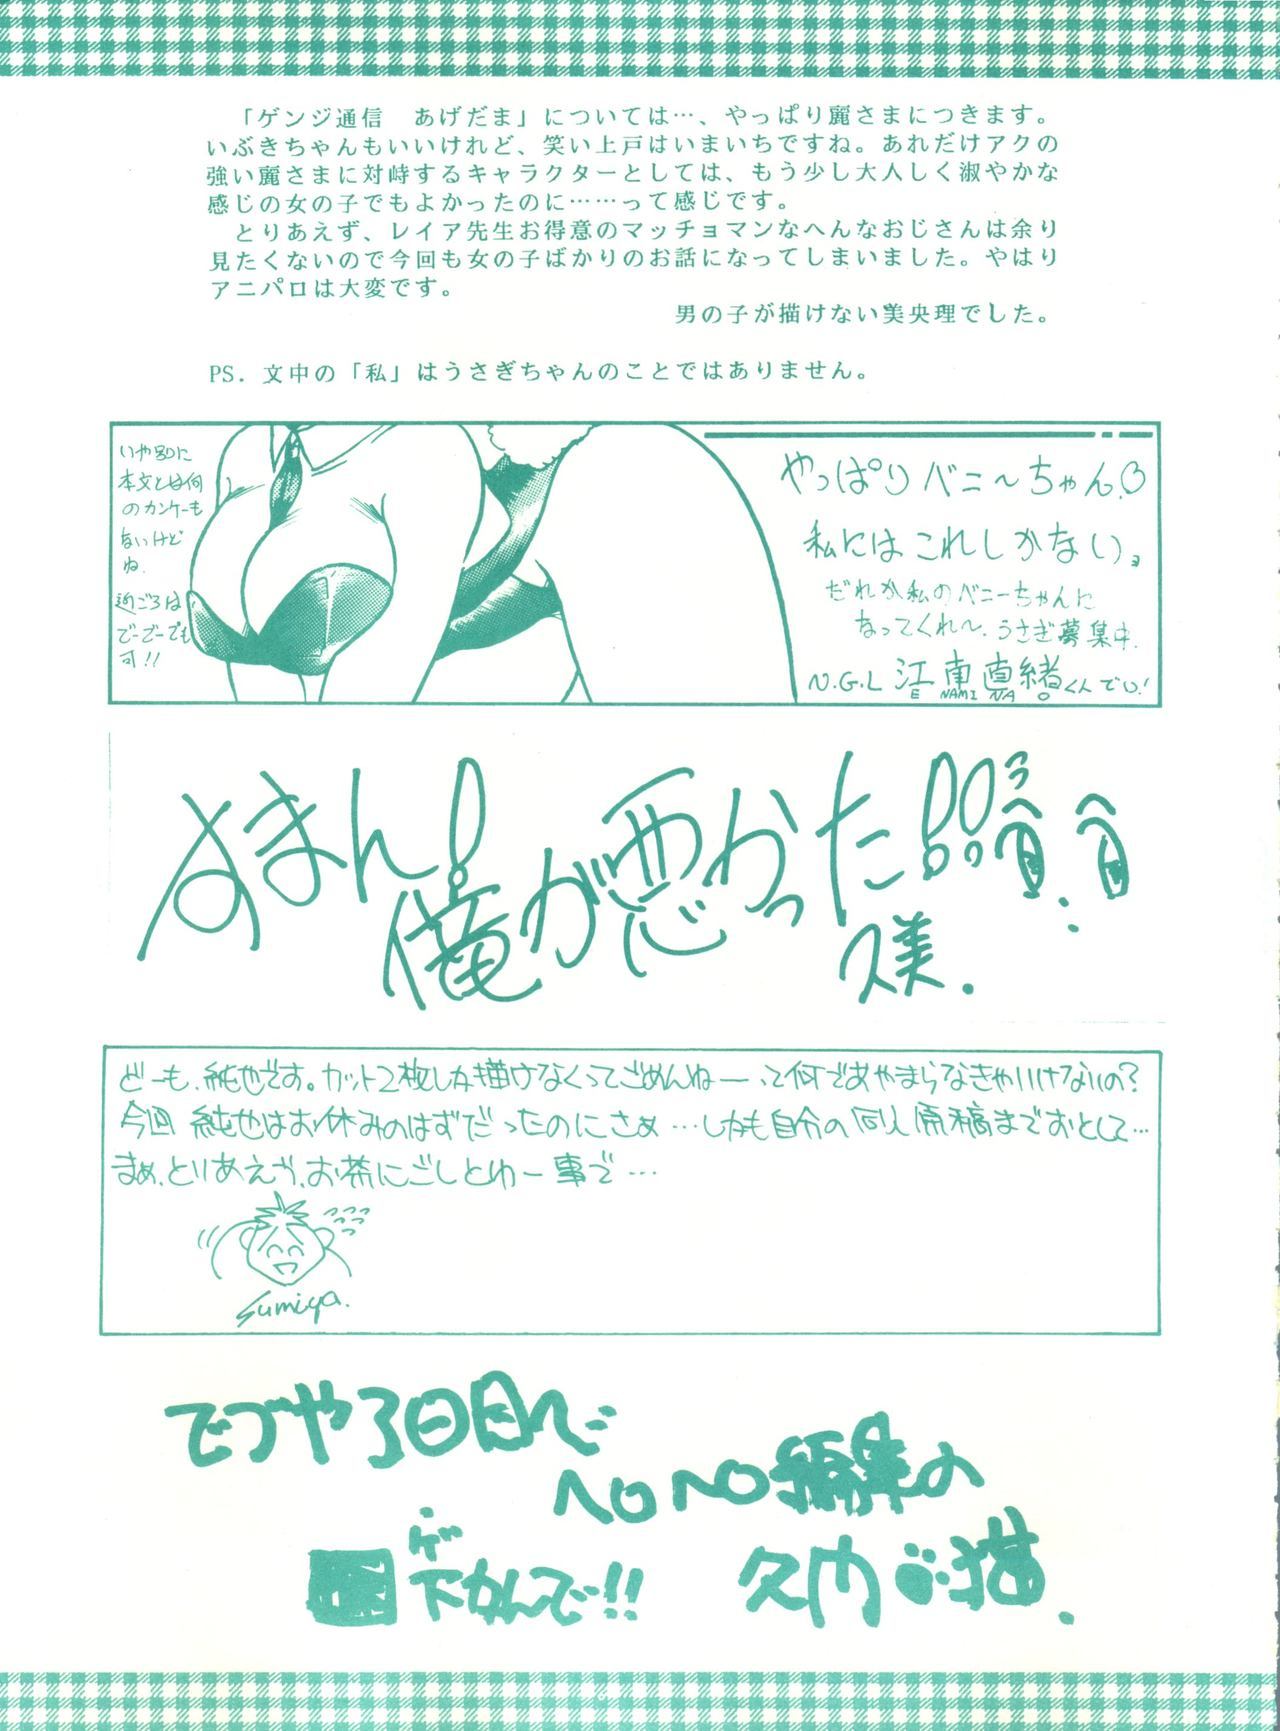 「ゲンジ通信　あげだま」については…、やっぱり麗さまにつきます。
いぶきちゃんもいいけれど、笑い上戸はいまいちですね。あれだけアクの
強い麗さまに対峙するキャラクターとしては、もう少し大人しく淑やかな
感じの女の子でもよかったのに……って感じです。
とりあえず、レイア先生お得意のマッチョマンなへんなおじさんは余り
見たくないので今回も女の子ばかりのお話になってしまいました。やはり
アニパロは大変です。
男の子が描けない美央理でした。
PS．文中の「私」はうさぎちゃんのことではありません。
いや別に
本文とは何
のカンケーも
ないけど
ね.
近ごろは
でーでーでも
可!!
やっぱりベニ〜ちゃん♡
私にはこれしかない。
だれか私のベニーちゃんに
なってくれ〜. うさぎ募集中.
N.G.L 江南直緒くんでい!
E NAMI NA O
すまん!
俺が悪かった!!
久美.
どーも、純也です。カット2枚しか描けなくってごめんねー って何であやまらなきゃいけないの?
今回 純也はお休みのはずだったのにさぁ…しかも自分の同人原稿までおとして…
まぁ、とりあえず、お茶にごしとゆー事で…
Sumiya.
でづや3日目で
ヘロヘロ編集の
久内 猫.
ゲ
下かんで!!